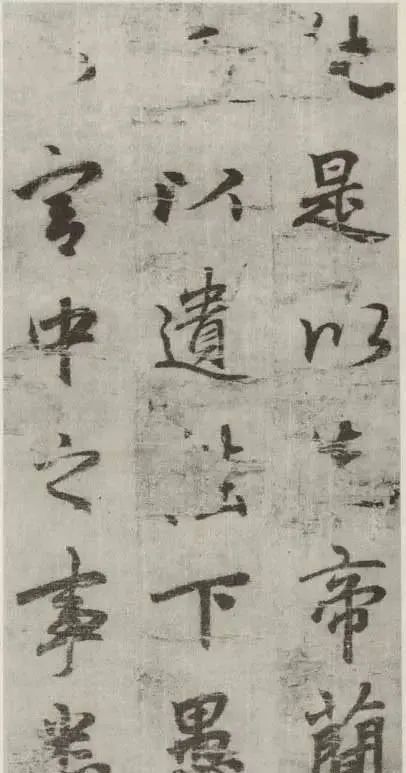 是以先帝簡
以遺陛下愚
宮中之事悉